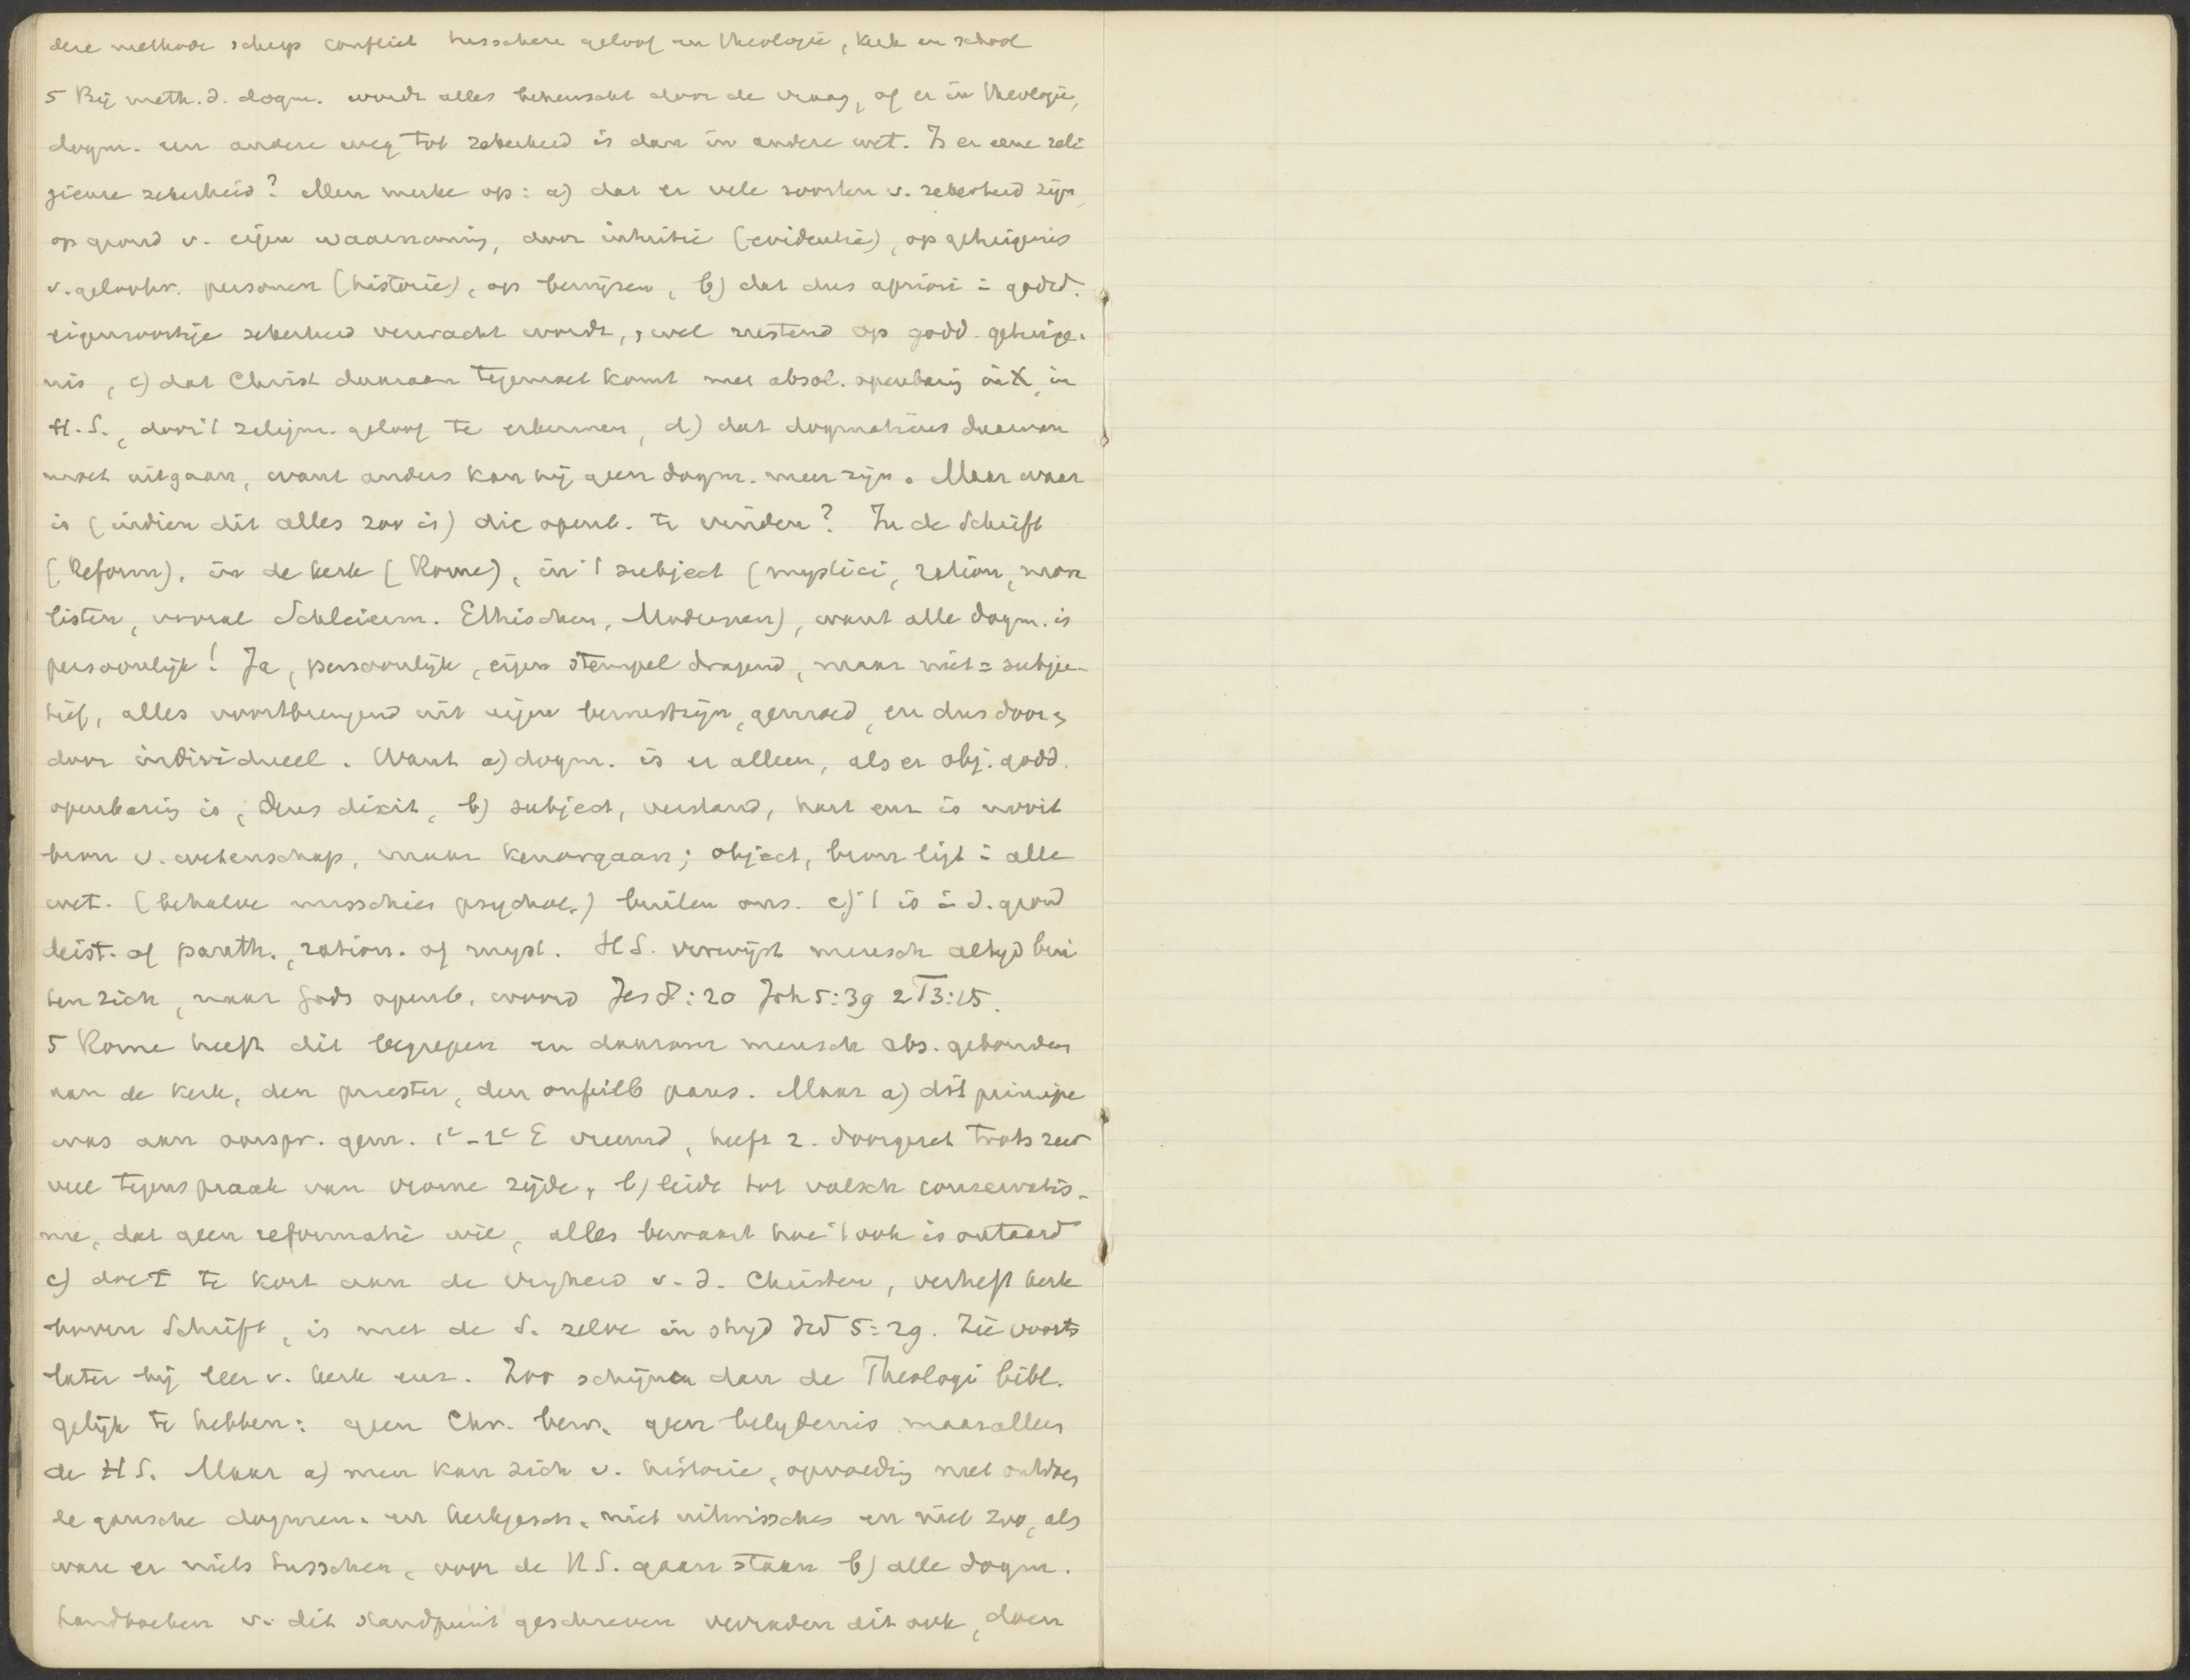 dere methode schiep conflict tusschen geloof en theologie, kerk en school
5 Bij meth. d. dogm. wordt alles beheerscht door de vraag, of er in theologie,
dogm. een andere weg tot zekerheid is dan in andere wet. Is er eene reli
gieuse zekerheid? Men merke op: a) dat er vele soorten v. zekerheid zijn,
op grond v. eigen waarneming, door intuitie (evidentie), op getuigenis
v. geloofw. personen (historie), op bewijzen, b) dat dus apriori i godsd.
eigensoortige zekerheid verwacht wordt, wel rustend op godd. getuige-
nis, c) dat Christ daaraan tegemoet komt met absol. openbarig in X, in
H.S., door 't religieus. geloof te erkennen, d) dat dogmaticus daarvan
moet uitgaan, want anders kan hij geen dogm. meer zijn. Maar waar
is (indien dit alles zoo is) die openb. te vinden? In de Schrift
(Reform), in de kerk (Rome), in 't subject (mystici, ration, mora
listen, vooral Schleierm. Ethischen, Modernen), want alle dogm. is
persoonlijk! Ja, persoonlijk, eigen stempel dragend, maar niet = subjec-
tief, alles voortbrengend uit eigen bewustzijn, gemoed, en dus door &
door individueel. Want a) dogm. is er alleen, als er obj. godd.
openbarig is, Deus dixit, b) subject, verstand, hart enz is nooit
bron v. wetenschap, maar kenorgaan; object, bron ligt i alle
wet. (behalve misschien psychol.) buiten ons. c) 't is i d. grond
deist. of panth., ration. of myst. HS. verwijst mensch altijd bui
ten zich, naar Gods openb. woord Jes 8:20 Joh 5:39 2T3:15.
5 Rome heeft dit begrepen en daarom mensch abs. gebonden
aan de kerk, den priester, den onfeilb paus. Maar a) dit principe
was aan oorspr. gem. 1e-2e E vreemd, heeft z. doorgezet trots zeer
veel tegenspraak van vrome zijde, b) leide tot valsch conservatis-
me, dat geen reformatie wil, alles bewaart hoe 't ook is ontaard
c) doet te kort aan de vrijheid v. d. Christen, verheft kerk
boven Schrift, is met de S. zelve in strijd Hd 5:29. Zie voorts
later bij leer v. kerk enz. Zoo schijnen dan de Theologi bibl.
gelijk te hebben: geen Chr. bew. geen belydenis maar alleen
de HS. Maar a) men kan zich v. historie, opvoedig niet ontdoen,
de gansche dogmen. en kerkgesch. niet uitwisschen en niet zoo, als
ware er niets tusschen, voor de HS. gaan staan b) alle dogm.
handboeken v. dit standpunt geschreven verraden dit ook, doen